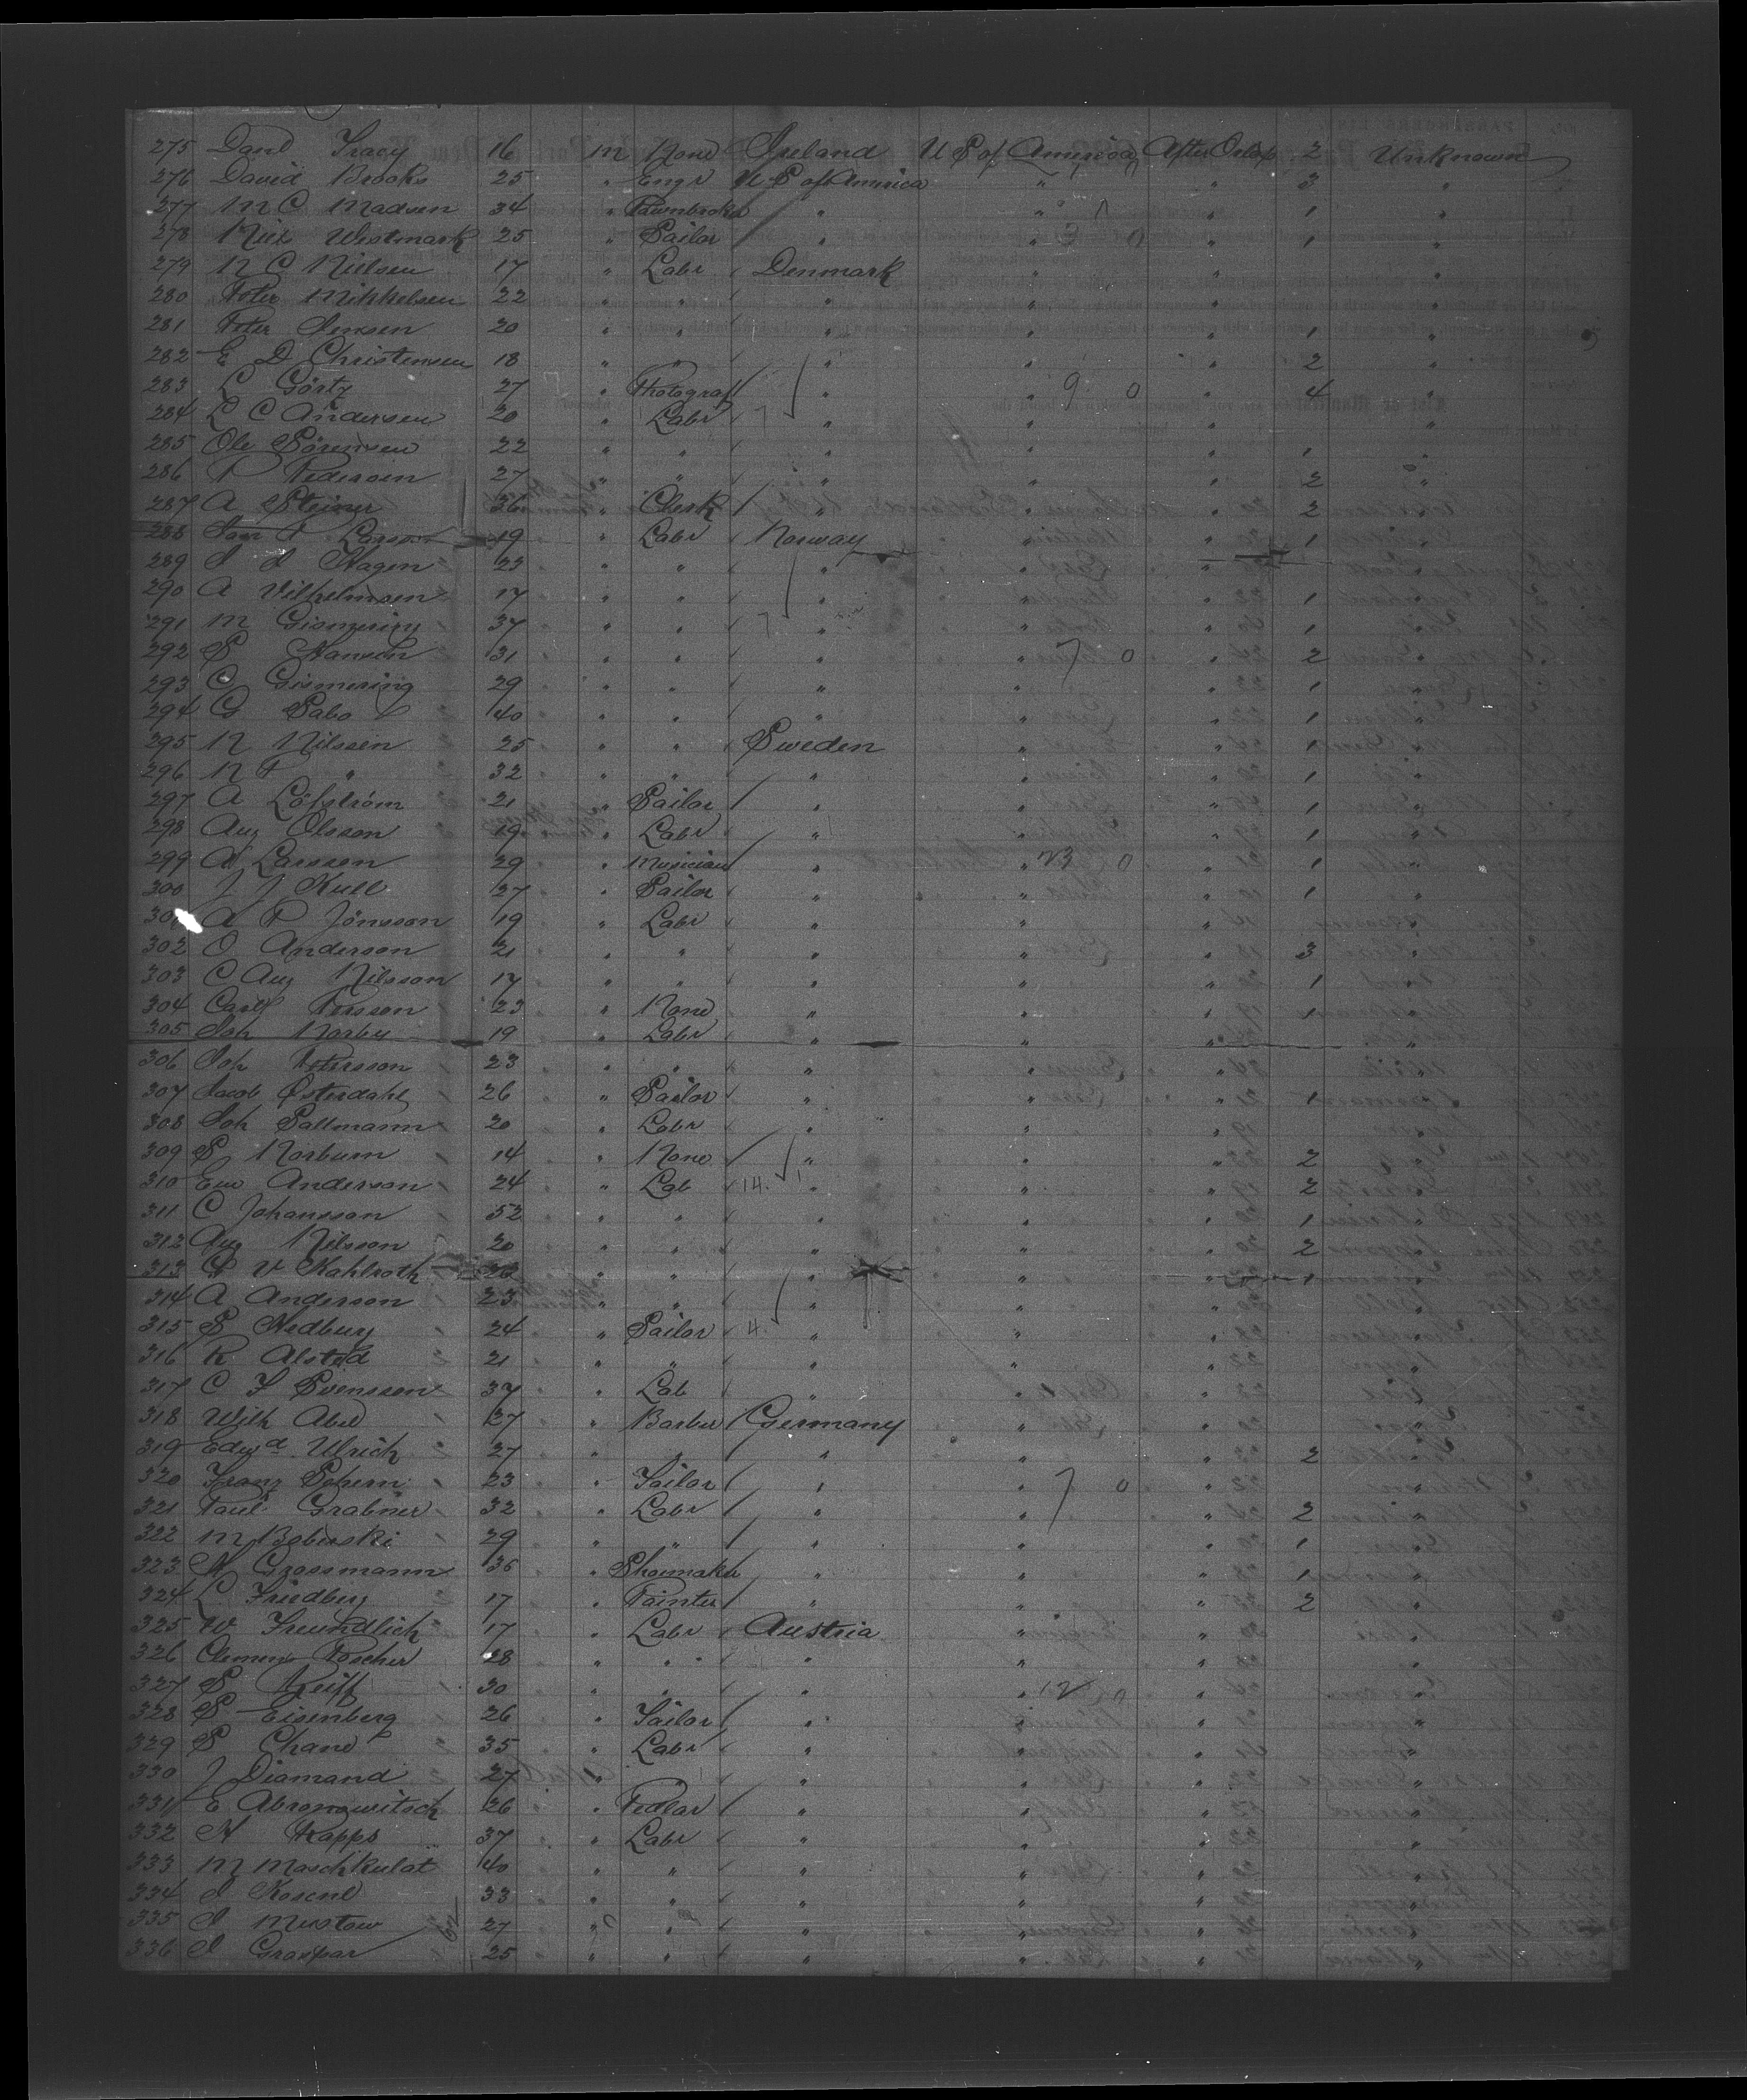 275 David Tracy 16 m None Ireland U S of America After Orlop 2 Unknown
276 David Brooks 25 " Engr U S of America " " 3 "
277 M C Madsen 34 " Pawnbroker " " " 1 "
278 Westmark 25 " Sailor " " 3 0 " 1 "
279 N C Nielsen 17 " Labr Denmark " " "
280 Peter Mikkelsen 22 " " " " " "
281 Peter Jensen 20 " " " " " 1 "
282 E D Christensen 18 " " " " " 2 "
283 L Görtz 27 " Photograf " " 9 0 " 4 "
284 L C Andersen 20 " Labr 7 " " " "
285 Ole Sörensen 22 " " " " " 1 "
286 P Pedersen 27 " " " " " 2 "
287 A Steiner 36 " Clerk " " " 2 "
288 P Larsen 19 " Labr Norway " " 1 "
289 Hagen 23 " " " " " "
290 A Vilhelmsen 17 " " " " " 1 "
291 M Gismering 37 " " 7 " " " 1 "
292 S Hanson 31 " " " " 7 0 " 2 "
293 C Gismering 29 " " " " " 1 "
294 G Sabo 40 " " " " " 1 "
295 N Nilssen 25 " " Sweden " " 1 "
296 N P " 32 " " " " " 1 "
297 A Löfström 21 " Sailor " " " 1 "
298 Aug Olsson 19 " Labr " " " 1 "
299 A Larsson 29 " Musician " " 23 0 " 1 "
300 J J Kull 27 " Sailor " " " 1 "
301 A P Jönsson 19 " Labr " " " "
302 O Anderson 21 " " " " " 3 "
303 C Aug Nilsson 17 " " " " " 1 "
304 Carl Persson 23 " None " " " 1 "
305 Joh Norby 19 " Labr " " " "
306 Joh Petersson 23 " " " " " "
307 Jacob Österdahl 26 " Sailor " " " 1 "
308 Joh Sallmann 20 " Labr " " " "
309 S Norbum 14 " None " " " 2 "
310 Anderson 24 " Lab 14. " " " 2 "
311 C Johansson 52 " " " " " 1 "
312 Aug Nilsson 20 " " " " " 2 "
313 V Kahlroth " " " " " 1 "
314 A Anderson 23 " " " " " "
315 S Hedburg 24 " Sailor 4. " " " "
316 R Alsted 21 " " " " " "
317 C F Svensson 37 " Lab " " " "
318 Wilh Abel 27 " Barber Germany " " "
319 Edwd Ulrich 27 " " " " " 2 "
320 Franz Schem 23 " Tailor " " 7 0 " "
321 Paul Grabner 32 " Labr " " " 2 "
322 M Boberski 29 " " " " " 1 "
323 Grossmann 36 " Shoemaker " " " 1 "
324 L Friedberg 17 " Painter " " " 2 "
325 W Freundlich 17 " Labr Austria " " "
326 Clemens Poscher 28 " " " " " "
327 S Reiff 30 " " " " 12 0 " "
328 S Eisenberg 26 " Tailor " " " "
329 S Chane 35 " Labr " " " "
330 J Diamand 27 " " " " " "
331 E Abramowitsch 26 " Pedlar " " " "
332 Rapps 37 " Labr " " " "
333 M Maschkulat 40 " " " " " "
334 Kosene 33 " " " " " "
335 Mustow 27 " " " " " "
336 Graspar 25 " " " " " "